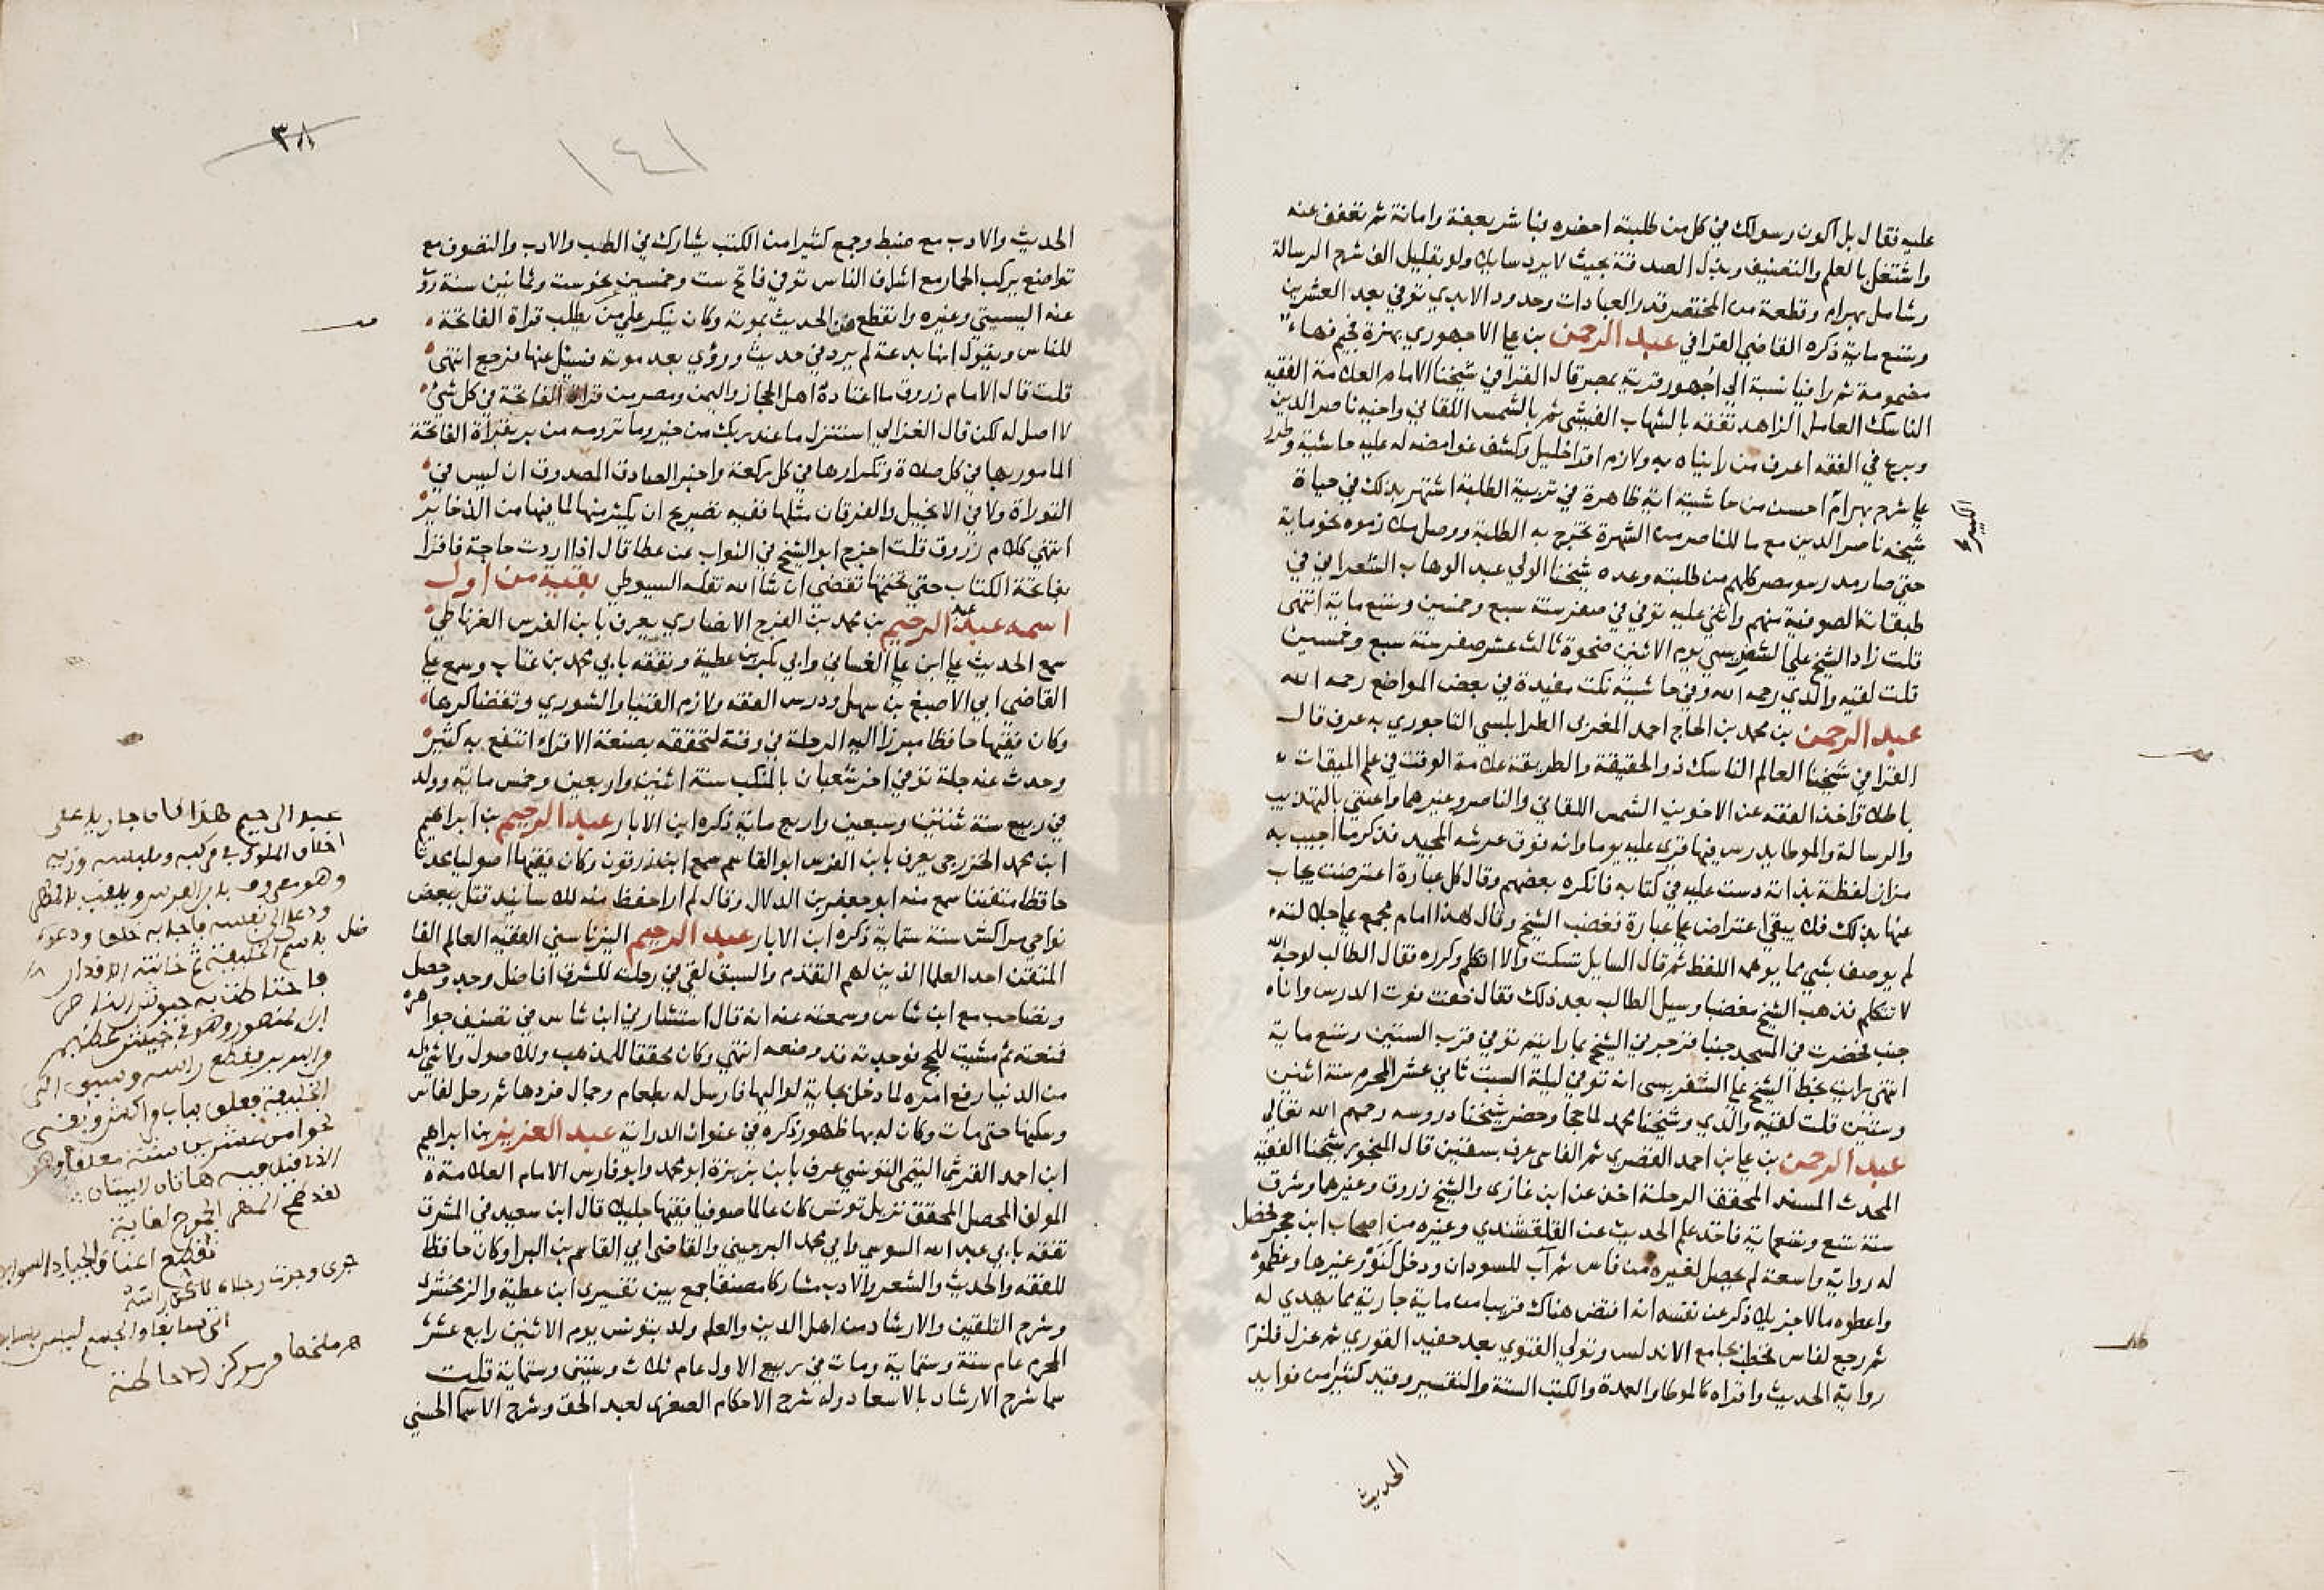 عليه فقال بل اكون رسولك في كل من طلبته احضره فباشر بعفة وامانة ثم تعفف عنه
واشتغل بالعلم والتصنيف وبذل الصدقة بحيث لا يرد سايلا ولو بقليل الف شرح الرسالة
وشامل بهرام وقطعة من المختصر قدر العبادات وحدود الابدي توفي بعد العشرين
وتسع ماية ذكره القاضي القرافي عبد الرحمن بن علي الاجهوري بهمزة فجيم فهاء
مضمومة ثم را فيا نسبة الي اجهور قرية بمصر قال القرافي شيخنا الامام العلامة الفقيه
الناسك العامل الزاهد تفقه بالشهاب الفيشي ثم بالشمس اللقاني واخيه ناصر الدين
وبرع في الفقه اعرف من رايناه به ولازم اقرا خليل وكشف غوامضه له عليه حاشية وطرر
علي شرح بهرام احسن من حاشيته اية ظاهرة في تربية الطلبة اشتهر بذلك في حياة
الكبير
شيخه ناصر الدين مع ما للناصر من الشهرة تخرج به الطلبة ووصل ملازموه نحو ماية
حتي صار مدرسو مصر كلهم من طلبته وعده شيخنا الولي عبد الوهاب الشعراني في
طبقات الصوفية منهم واثني عليه توفي في صفر سنة سبع وخمسين وتسع ماية انتهى
قلت زاد الشيخ علي الشفريسي يوم الاثنين ضحوة ثالث عشر صفر سنة سبع وخمسين
قلت لقيه والدي رحمه الله وفي حاشيته نكت مفيدة في بعض المواضع رحمه الله
عبد الرحمن بن محمد بن الحاج احمد المغربي الطرابلسي التاجوري به عرف قال
القرافي شيخنا العالم الناسك ذو الحقيقة والطريقة علامة الوقت في علم الميقات
باطلاق اخذ الفقه عن الاخوين الشمس اللقاني والناصر وغيرهما واعتني بالتهذيب
والرسالة والموطا يدرس فيها قري عليه يوما وانه فوق عرشه المجيد فذكر ما اجيب به
من ان لفظة بذاته دست عليه في كتابه فانكره بعضهم وقال كل عبارة اعترضت يجاب
عنها بذلك فلا يبقي اعتراض علي عبارة فغضب الشيخ وقال هذا امام مجمع علي جلالته
لم يوصف بشي مما يوهمه اللفظ ثم قال السايل تسكت والا اتكلم وكرره فقال الطالب لوجه الله
لا تتكلم فذهب الشيخ مغضبا وسيل الطالب بعد ذلك فقال خفت فوت الدرس وانا
جنب فحضرت في المسجد جنبا فزجرني الشيخ بما رايتم توفي قرب الستين وتسع ماية
انتهى رايت بخط الشيخ علي الشفريسي انه توفي ليلة السبت ثاني عشر المحرم سنة اثنين
وستين قلت لقيه والدي وشيخنا محمد لما حجا وحضر شيخنا دروسه رحمهم الله تعالي
عبد الرحمن بن علي بن احمد القصري ثم الفاسي عرف بسقين قال المنجور شيخنا الفقيه
المحدث المسند المحقق الرحلة اخذ عن ابن غازي والشيخ زروق وغيرهما وشرق
سنة تسع وتسعماية فاخذ علم الحديث عن القلقشندي وغيره من اصحاب ابن حجر فحصل
له رواية واسعة لم يحصل لغيره من فاس ثم آب للسودان ودخل كنو وغيرها وعظموه
واعطوه مالا جزيلا ذكر عن نفسه انه افتض هناك قريبا من ماية جارية مما يهدي له
ثم رجع لفاس فخطب بجامع الاندلس وتولي الفتوي بعد حفيد القوري ثم عزل فلزم
رواية الحديث واقراه كالموطا والعمدة والكتب الستة والتفسير وقيد كثيرا من فوايد
الحديث
٣٨
١٤١
الحديث والادب مع ضبط وجمع كثيرا من الكتب يشارك في الطب والادب والتصوف مع
تواضع يركب الحمار مع اشراف الناس توفي فاتح ست وخمسين عن نحو ست وثمانين سنة روى
عنه اليسيتني وغيره وانقطع فن الحديث بموته وكان ينكر علي من يطلب قراة الفاتحة
للناس ويقول انها بدعة لم يرد في حديث ورؤي بعد موته فسيل عنها فرجع انتهى
قلت قال الامام زروق ما اعتاده اهل الحجاز واليمن ومصر من قراة الفاتحة في كل شي
لا اصل له لكن قال الغزالي استنزل ما عند ربك من خير وما ترومه من بر بقراة الفاتحة
المامور بها في كل صلاة وتكرارها في كل ركعة واخبر الصادق المصدوق ان ليس في
التوراة ولا في الانجيل والفرقان مثلها ففيه تصريح ان يكثر منها لما فيها من الذخاير
انتهي كلام زروق قلت اخرج ابو الشيخ في الثواب عن عطا قال اذا اردت حاجة فاقرا
بفاتحة الكتاب حتي تختمها تقضى ان شا الله نقله السيوطي بقية من اول
اسمه عبد عبد الرحيم بن محمد بن الفرج الانصاري يعرف بابن الفرس الغرناطي
سمع الحديث علي ابن علي الغساني وابي بكر بن عطية وتفقه بابي محمد بن عتاب وسمع علي
القاضي ابي الاصبغ بن سهل ودرس الفقه ولازم الفتيا والشوري وتقضا كرها
وكان فقيها حافظا مبرزا اليه الرحلة في وقته لتحققه بصنعة الاقراء انتفع به كثير
وحدث عنه جلة توفي اخر شعبان بالمنكب سنة اثنين واربعين وخمس ماية وولد
في ربيع سنة ثنتين وسبعين واربع ماية ذكره ابن الابار عبد الرحيم بن ابراهيم
ابن محمد الخزرجي يعرف بابن الفرس ابو القاسم سمع ابن زرقون وكان فقيها اصوليا محدثا
حافظا متفننا سمع منه ابو جعفر بن الدلال وقال لم ار احفظ منه للاسانيد قتل ببعض
نواحي مراكش سنة ستماية ذكره ابن الابار عبد الرحيم اليزناسني الفقيه العالم الفا
المتقن احد العلما الذين لهم التقدم والسبق لقي في رحلته للشرق افاضل وجد وحصل
وتصاحب مع ابن شاس وسمعته عنه انه قال استشارني ابن شاس في تصنيف جواهره
فمنعته ثم مشيت للحج فوجدته قد وضعه انتهي وكان محققا للمذهب وللاصول ولا شي له
من الدنيا رفع امره لما دخل بجاية لواليها فارسل له بطعام وحمال فردها ثم رحل لفاس
وسكنها حتى مات وكان له بها ظهور ذكره في عنوان الدراية عبد العزيز بن ابراهيم
ابن احمد القرشي التيمي التونسي عرف بابن بزيزة ابو محمد وابو فارس الامام العلامة
المولف المحصل المحقق نزيل تونس كان عالما صوفيا فقيها جليلا قال ابن سعيد في المشرق
تفقه بابي عبد الله السوسي وابي محمد البرجيني والقاضي ابي القاسم بن البرا وكان حافظا
للفقه والحديث والشعر والادب مشاركا مصنفا جمع بين تفسيري ابن عطية والزمخشري
وشرح التلقين والارشاد من اهل الدين والعلم ولد بتونس يوم الاثنين رابع عشر
المحرم عام ستة وستماية ومات في ربيع الاول عام ثلاث وستين وستماية قلت
سما شرح الارشاد بالاسعاد وله شرح الاحكام الصغرى لعبد الحق وشرح الاسما الحسني
عبد الرحيم هذا كان جاريا على
اخلاق الملوك في مركبه وملبسه وزيه
وهو معروف بابن الفرس ويلقب بالمهر
ودعا الى نفسه فاجابه خلق ودعوه
باسم الخليفة ثم خانته الاقدار
فاحتاطت به جيوش الناصر
ابن المنصور وهو في جيش عظيم
من البربر فقطع راسه وسيق الى
الخليفة فعلق بباب مراكش وبقي
نحوا من عشرين سنة معلقا وهو
الذي قيل فيه هذان البيتان